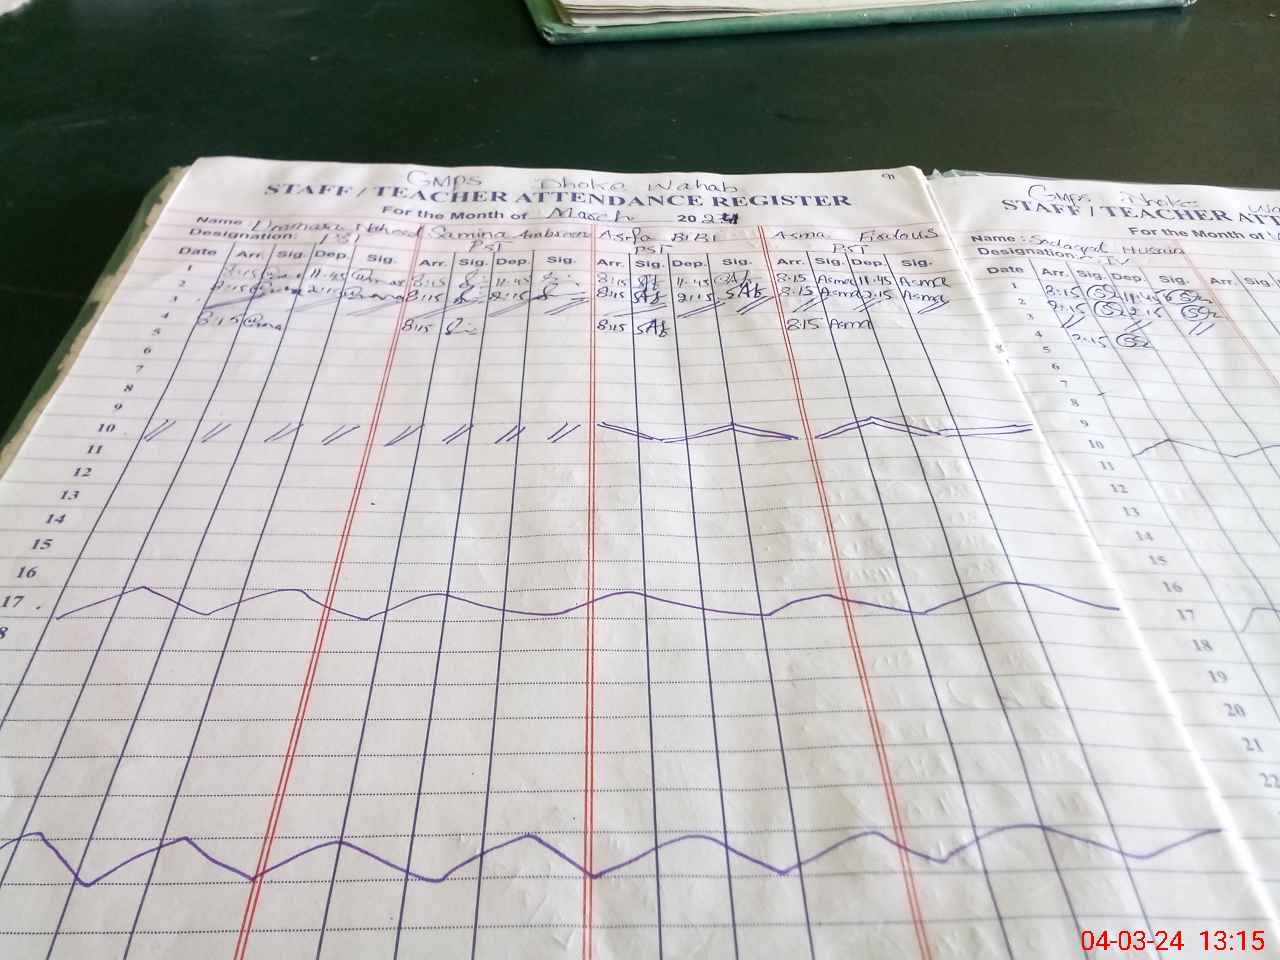 GMPS Dhoke Wahab
STAFF / TEACHER ATTENDANCE REGISTER
For the Month of March 2024
Name Samina Ambreen Asifa BiBi Asma Firdous
Designation: PST PST PST PST
Date Arr. Sig. Dep. Sig. Arr. Sig. Dep. Sig. Arr. Sig. Dep. Sig. Arr. Sig. Dep. Sig.
1 8:15 11:45 8:15 11:45 8:15 11:45 8:15 Asma 11:45 Asma
2 8:15 2:15 8:15 2:15 8:15 2:15 8:15 Asma 2:15 Asma
3
4 8:15 8:15 8:15 8:15 Asma
5
6
7
8
9
10
11
12
13
14
15
16
17
8
GMPS Dhoke Wa
STAFF / TEACHER AT
For the Month of
Name :
Designation:
Date Arr. Sig. Dep. Sig. Arr. Sig
1 8:15 11:45
2 8:15 2:15
3
4
5
6
7
8
9
10
11
12
13
14
15
16
17
18
19
20
21
22
04-03-24 13:15